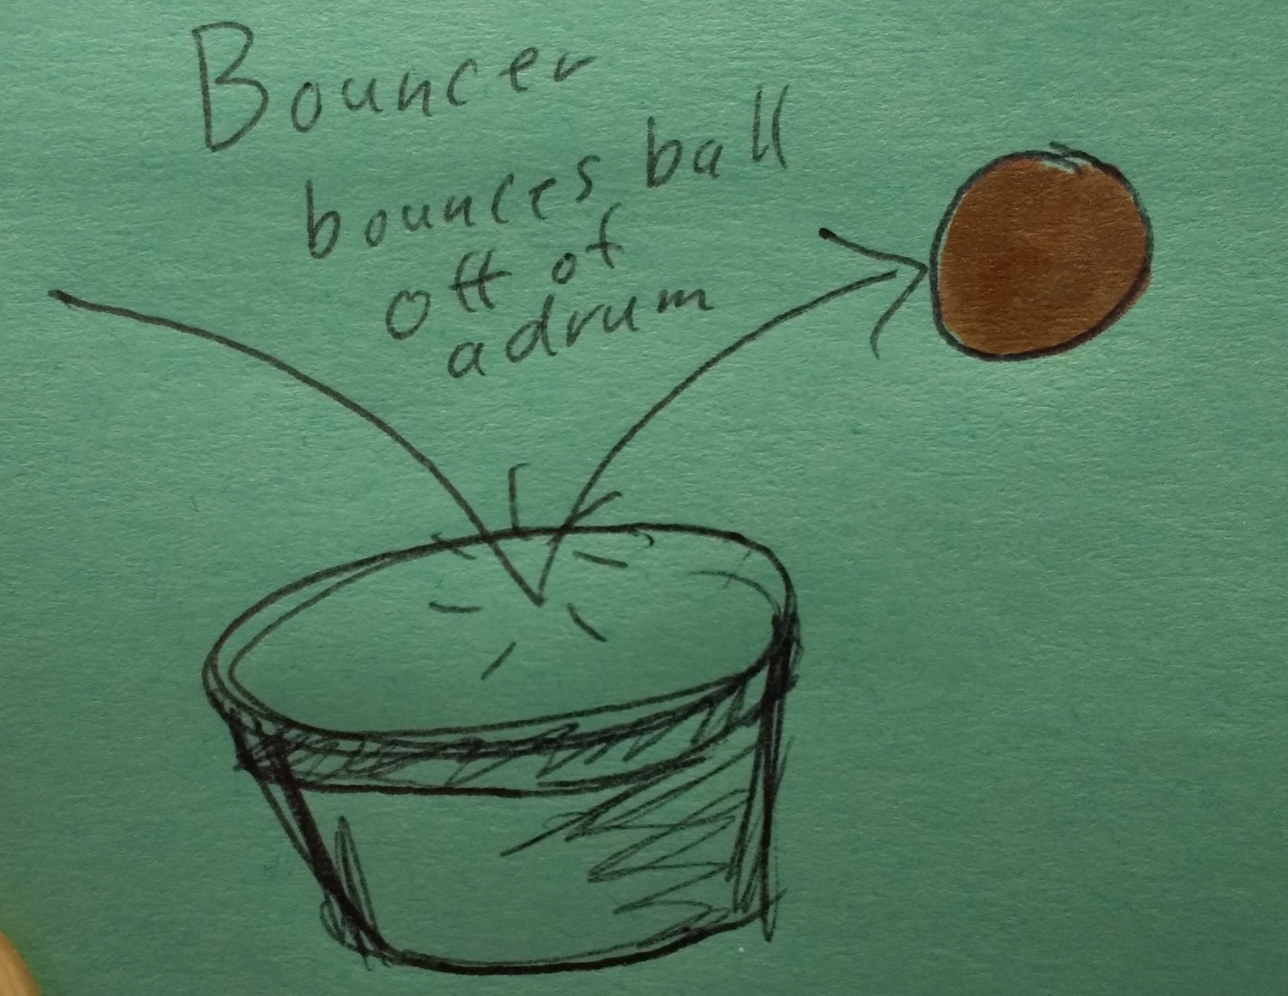 Bouncer
bounces ball
off of
a drum